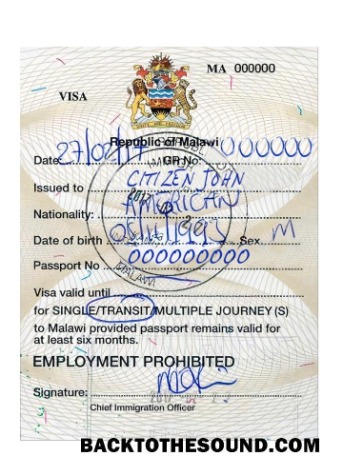 MA 000000
VISA
Republic of Malawi
Date: 27/02/17 GR No: 000000
Issued to CITIZEN JOHN
Nationality: AMERICAN
Date of birth Sex M
Passport No 000000000
Visa valid until
for SINGLE/TRANSIT/MULTIPLE JOURNEY (S)
to Malawi provided passport remains valid for
at least six months.
EMPLOYMENT PROHIBITED
Signature:
Chief Immigration Officer
MALAWI
BACKTOTHESOUND.COM